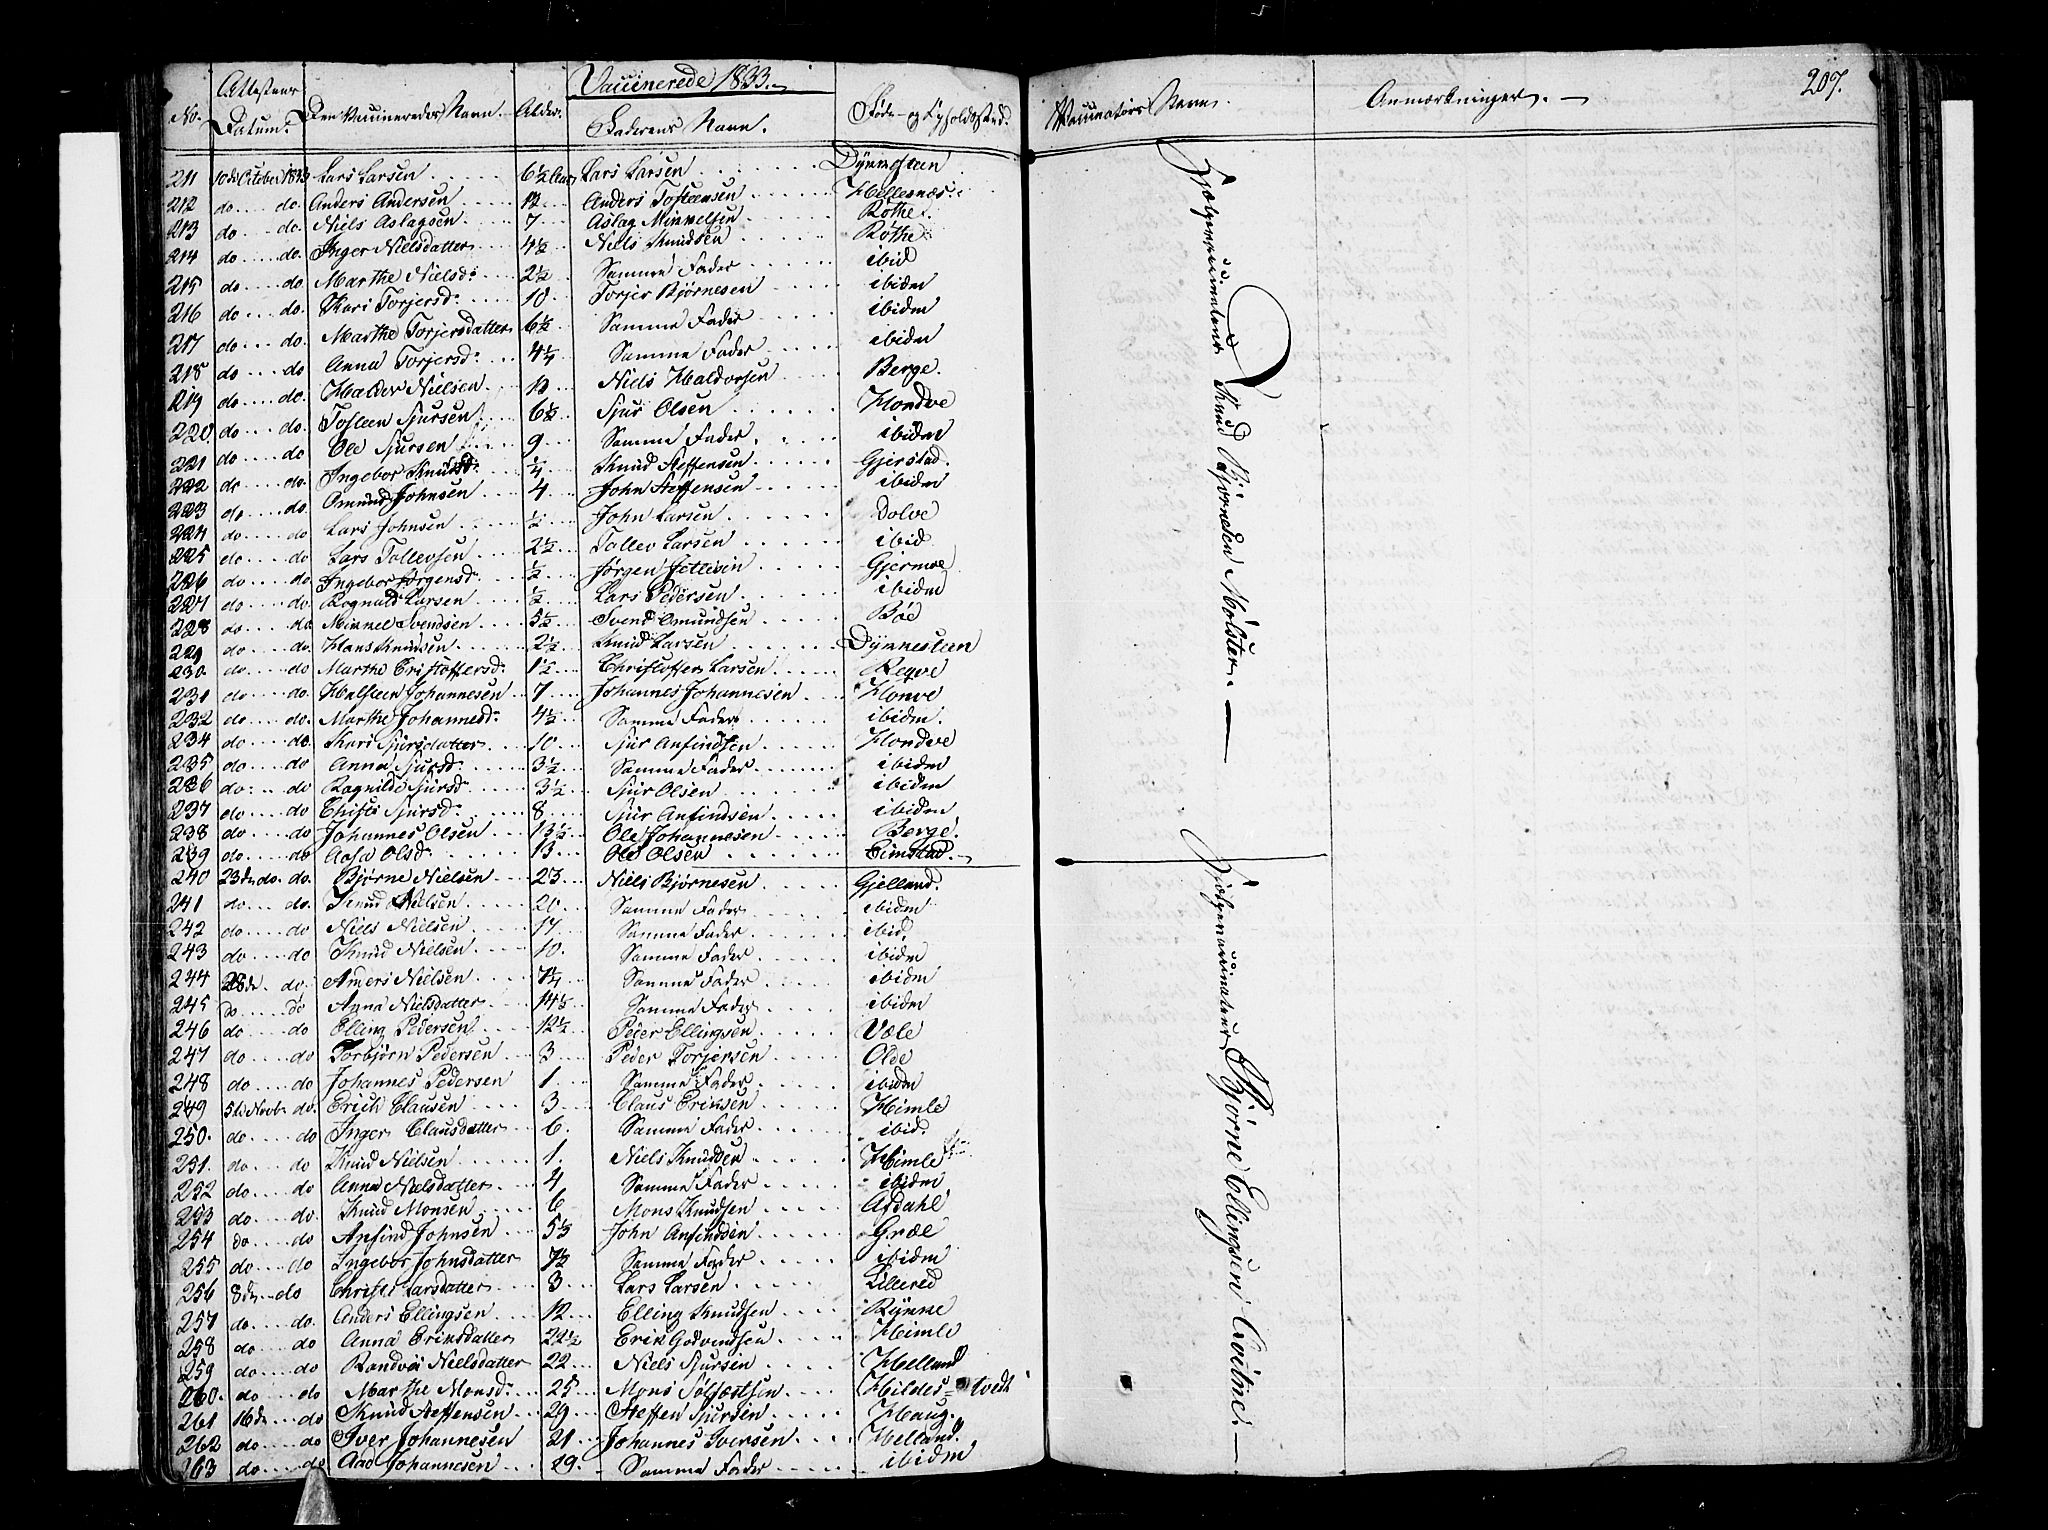 Vaccinerede 1833.
207.
No. Attestens Datum. Den Vaccineredes Navn. Alder. Faderens Navn. Føde- og Opholdsted. Vaccinatörs Navn. Anmærkninger.
211 10de October 1833 Lars Larsen 6½ Aar Lars Larsen Dÿmesteen
212 do do. Anders Andersen 12 Anders Tosteensen Hellesnæs
213 do do. Niels Aslagsen 7 Aslag Michelsen Røthe
214 do do. Inger Nielsdatter 4½ Niels Knudsen Røthe
215 do do. Marthe Nielsd: 2½ Samme Fader ibid
216 do do. Kari Torjersd: 10 Torjer Bjørnesen ibidm
217 do do. Marthe Torjersdatter 6½ Samme Fader ibidm
218 do do Anna Torjersd: 4¼ Samme Fader ibidm
219 do do. Haldor Nielsen 12 Niels Haldorsen Berge.
220 do do. Tosteen Sjursen 6½ Sjur Olsen Hondve
221 do do Ole Sjursen 9 Samme Fader ibidm
222 do do. Ingebor Knudsd: ¼ Knud Steffensen Gjerstad
223 do do. Omund Johnsen 4 John Steffensen ibidm
224 do do Lars Johnsen ½ John Larsen Dolve
225 do do Lars Tollevsen 2½ Tollev Larsen ibid
226 do do. Ingebor Jørgensd: ½ Jørgen Gjermoe
227 do do. Rognald Larsen ½ Lars Pedersen ibidm
228 do do Michel Svendsen 3½ Svend Omundsen Bøe
229 do do. Hans Knudsen 2½ Knud Larsen Dÿmesteen
230 do do Marthe Cristoffersd: 1½ Christoffer Larsen Reqve
231 do do. Halsteen Johannesen 7 Johannes Johannesen Honve
232 do do. Marthe Johannesd: 4½ Samme Fader ibidm.
234 do do. Kari Sjursdatter 10 Sjur Anfindsen Hondve
235 do do Anna Sjursd: 3½ Samme Fader ibidm
236 do do Ragnilde Sjursd: 3½ Sjur Olsen ibidm
237 do do Christi Sjursd: 8 Sjur Anfindsen ibidm
238 do do. Johannes Olsen 13½ Ole Johannesen Berge.
239 do do Aasa Olsd: 13 Ole Olsen Eimstad.
240 23de do. do. Bjørne Nielsen 23 Niels Bjørnesen Gjelland.
241 do do. Knud Nielsen 20 Samme Fader ibidm
242 do do Niels Nielsen 17 Samme Fader ibid,
243 do do Knud Nielsen 10. Samme Fader ibidm
244 28de do. Anders Nielsen 7¼ Samme Fader ibidm
245 do do Anna Nielsdatter 14½ Samme Fader ibidm
246 do do Elling Pedersen 12½ Peder Ellingsen Væle
247 do do Torbjørn Pedersen 3 Peder Torjersen Olde
248 do do Johannes Pedersen 1 Samme Fader ibidm
249 5de Novb do. Erich Clausen 3 Claus Eriksen Himle
250. do do Inger Clausdatter 6. Samme Fader ibid.
251. do do Knud Nielsen 1. Niels Knudsen Himle
252 do do Anna Nielsdatter 4 Samme Fader ibidm
253 do do. Knud Monsen 6 Mons Knudsen Afdahl
254 do do Anfind Johnsen 5½ John Anfindsen Græe
255 do do Ingebor Johnsdatter 7½ Samme Fader ibidm
256 8de do Christi Larsdatter 3 Lars Larsen Lillered
257 do do. Anders Ellingsen 12 Elling Knudsen Rÿnne
258 do do Anna Eriksdatter 22½ Erik Godvendsen Himle
259 do do Randvei Nielsdatter 22 Niels Sjursen Helland
260. do do Marthe Monsd: 25 Mons Sølfæstsen Hildestvedt
261 16de do Knud Steffensen 29 Steffen Sjursen Haug.
262 do do Iver Johannesen 21 Johannes Iversen Helland.
263 do do Aad Johannesen 19. Samme Fader ibidm
Hjælpevaccinateur Knud Bjørnesen Mølster.
Hjælpevaccinateur Bjørne Ellingsen Qvitne.